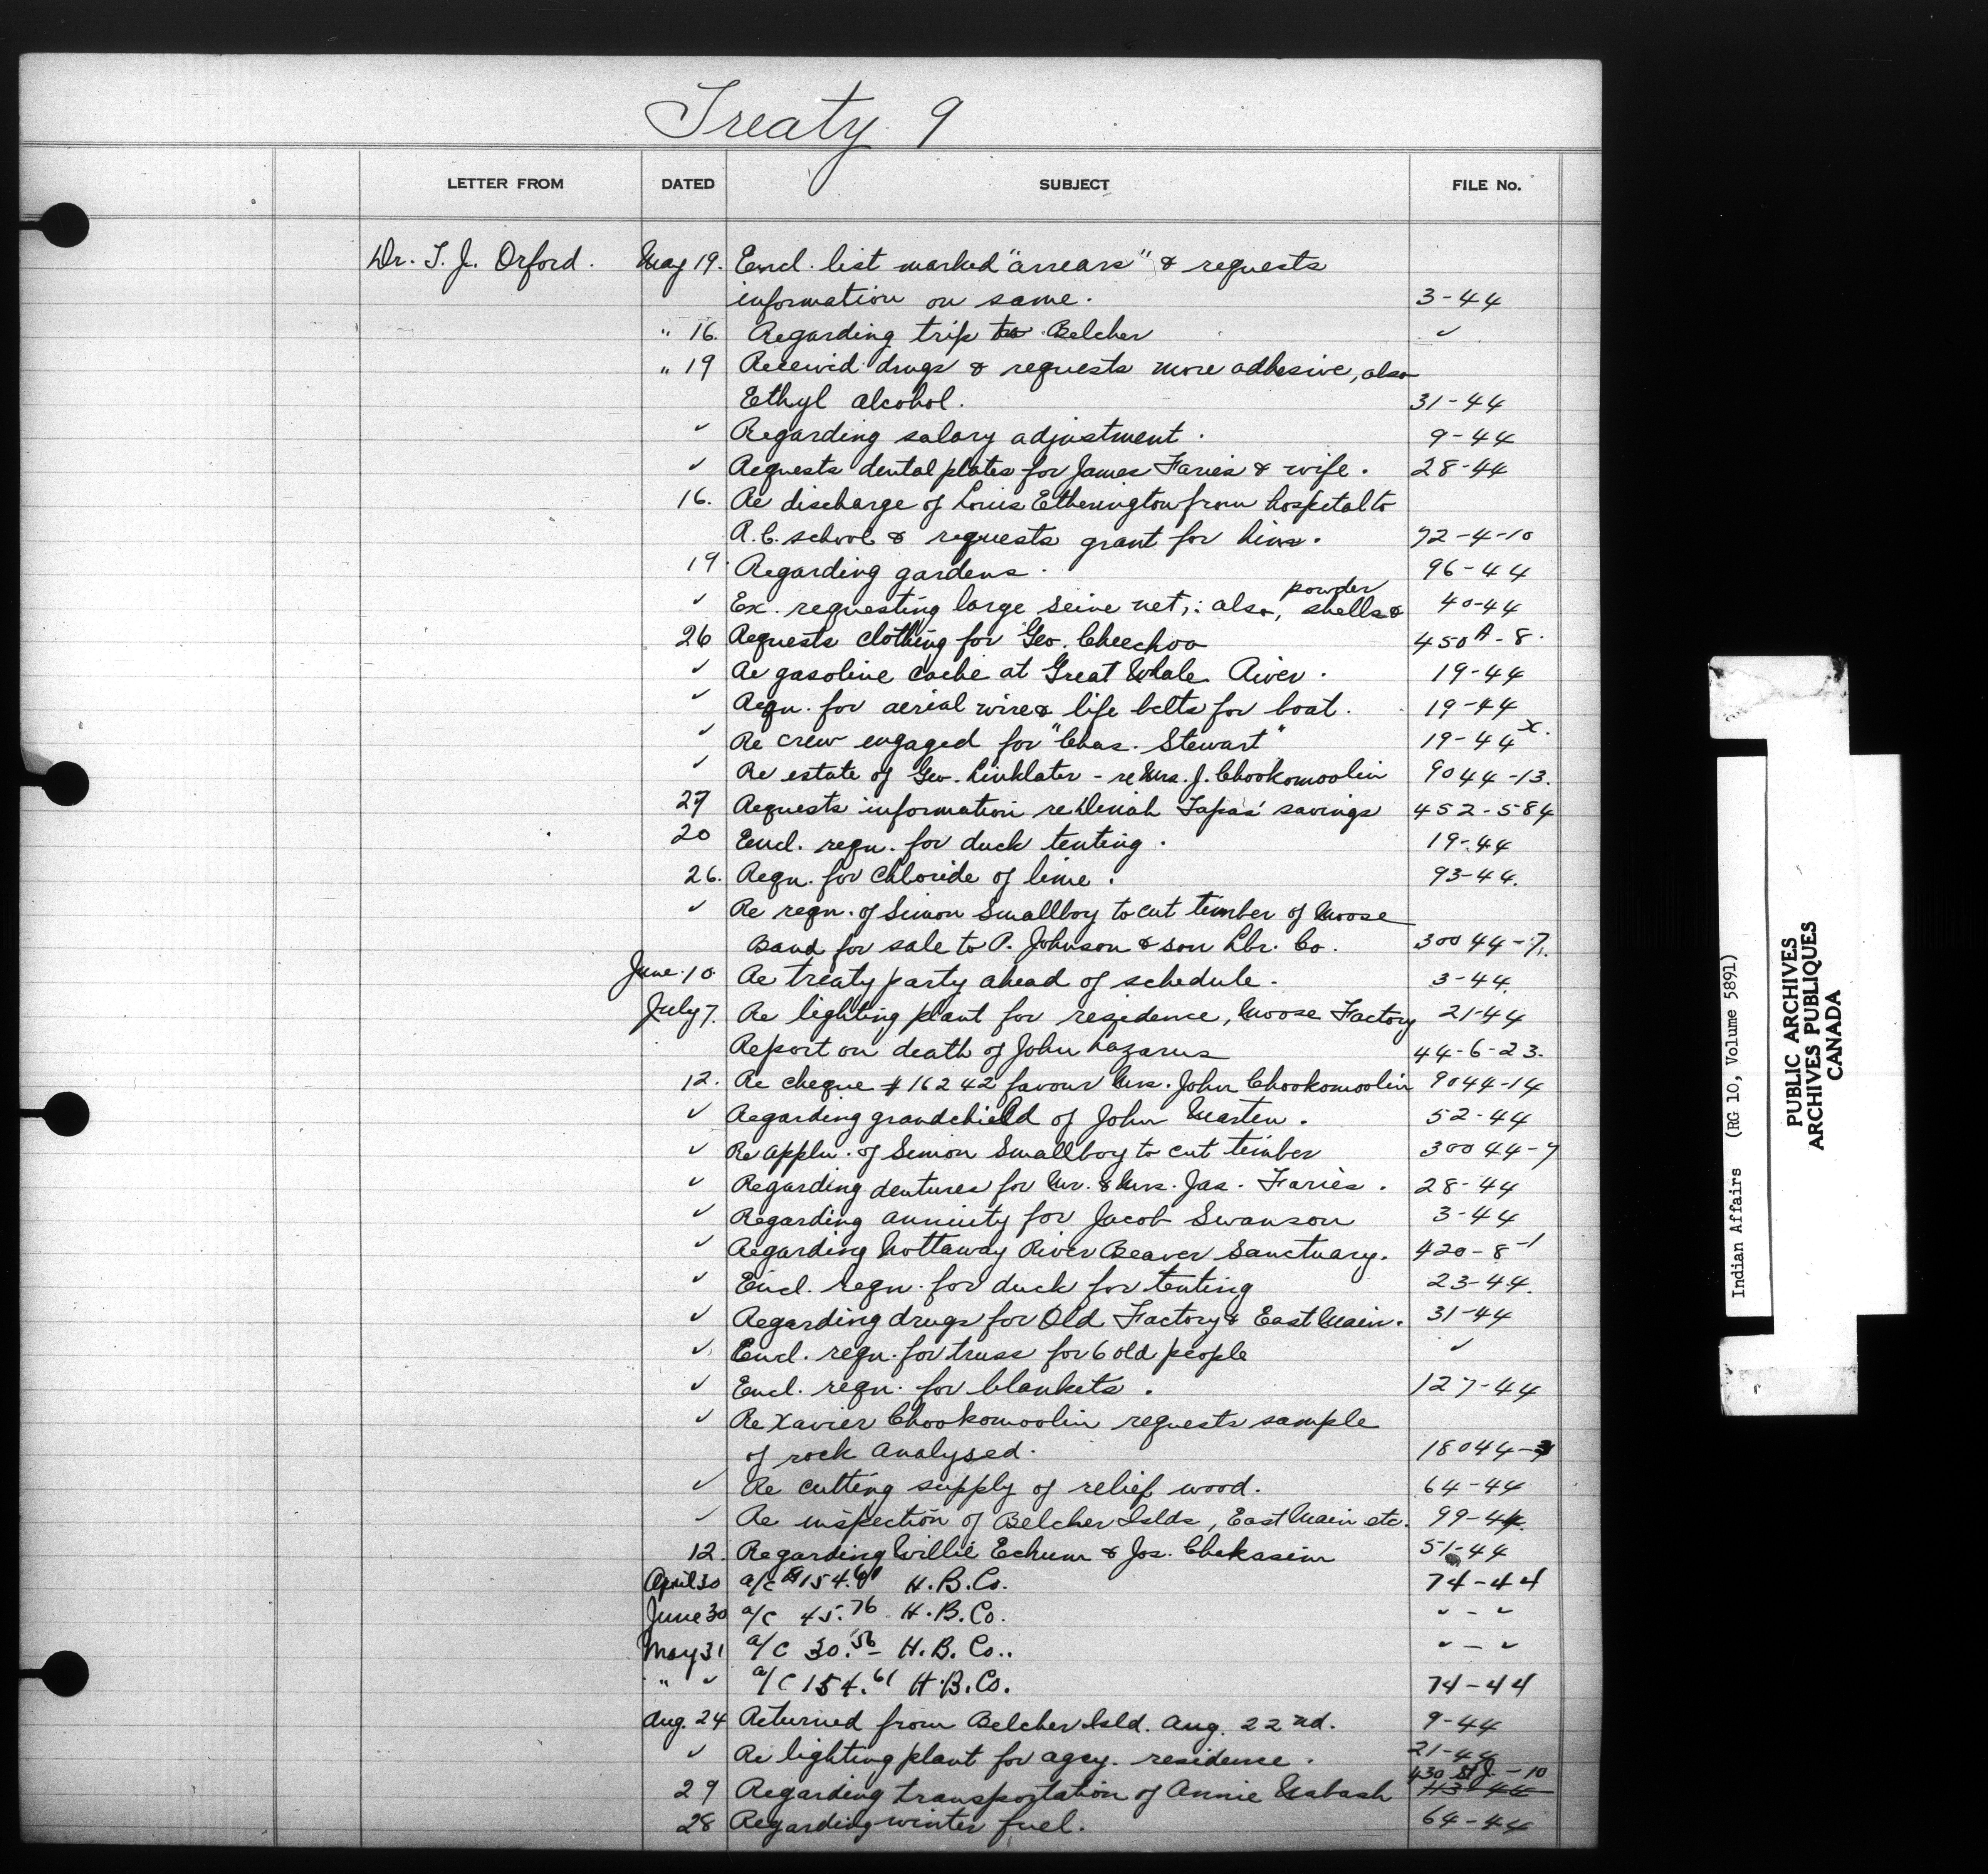 Treaty 9
LETTER FROM DATED SUBJECT FILE No.
Dr. T. J. Orford. May 19. Encl. list marked "arrears" & requests
information on same. 3-44
" 16. Regarding trip to Belcher ✓
" 19 Received drugs & requests more adhesive, also
Ethyl alcohol. 31-44
✓ Regarding salary adjustment. 9-44
✓ Requests dental plates for James Faries & wife. 28-44
16. Re discharge of Louis Etherington from hospital to
R.C. school & requests grant for him. 72-4-10
19 Regarding gardens. 96-44
powder
✓ Ex. requesting large seine net; also, shells & 40-44
26 Requests clothing for Geo. Cheechoo 450A-8.
✓ Re gasoline cache at Great Whale River. 19-44
✓ Reqn. for aerial wire & life belts for boat. 19-44
✓ Re crew engaged for "Chas. Stewart" 19-44x.
✓ Re estate of Geo. Linklater - re Mrs. J. Chookomoolin 9044-13.
27 Requests information re Deniah Tapas' savings 452-584
20 Encl. reqn. for duck tenting. 19-44
26. Reqn. for Chloride of lime. 93-44.
✓ Re reqn. of Simon Smallboy to cut timber of Moose
Band for sale to P. Johnson & son Lbr. Co. 30044-7.
June 10 Re treaty party ahead of schedule. 3-44.
July 7. Re lighting plant for residence, Moose Factory 21-44
Report on death of John Lazarus 44-6-23.
12. Re cheque #16242 favour Mrs. John Chookomoolin 9044-14
✓ Regarding grandchild of John Marten. 52-44
✓ Re appln. of Simon Smallboy to cut timber 30044-7
✓ Regarding dentures for Mr. & Mrs. Jas. Faries. 28-44
✓ Regarding annuity for Jacob Swanson 3-44
✓ Regarding Nottaway River Beaver Sanctuary. 420-8-1
✓ Encl. reqn. for duck for tenting 23-44.
✓ Regarding drugs for Old Factory & East Main. 31-44
✓ Encl. reqn. for truss for 6 old people ✓
✓ Encl. reqn. for blankets. 127-44
✓ Re Xavier Chookomoolin requests sample
of rock analysed. 18044-
✓ Re cutting supply of relief wood. 64-44
✓ Re inspection of Belcher Islds, East Main etc. 99-44.
12. Regarding Willie Echum & Jos. Chakasim 51-44
April 30 a/c $154.61 H.B.Co. 74-44
June 30 a/c 45.76 H.B.Co. ✓ - ✓
May 31 a/c 30.56 - H.B.Co.. ✓ - ✓
" ✓ a/c 154.61 H.B.Co. 74-44
Aug. 24 Returned from Belcher Isld. Aug. 22nd. 9-44
✓ Re lighting plant for agcy. residence. 21-44
430 St J. -10
29 Regarding transportation of Annie Nabash
28 Regarding winter fuel. 64-44
Indian Affairs (RG 10, Volume 5891)
PUBLIC ARCHIVES
ARCHIVES PUBLIQUES
CANADA